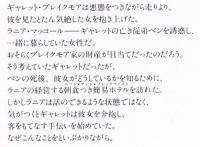 ギャレット・ブレイクモアは悪態をつきながら走りより、
彼を見たとたん気絶した女を抱き上げた。
ラニア・マッコール――ギャレットの亡き従弟ベンを誘惑し、
一緒に暮らしていた女性だ。
おそらくブレイクモア家の財産が目当てだったのだろう。
そう考えていたギャレットだったが、
ベンの死後、彼女がどうしているかを知るために、
ラニアの経営する朝食つき簡易ホテルを訪れた。
しかしラニアは話のできるような状態ではなく、
気がつくとギャレットは彼女を介抱し、
客をもてなす手伝いを始めていた。
なぜこんなことをといぶかりながら。